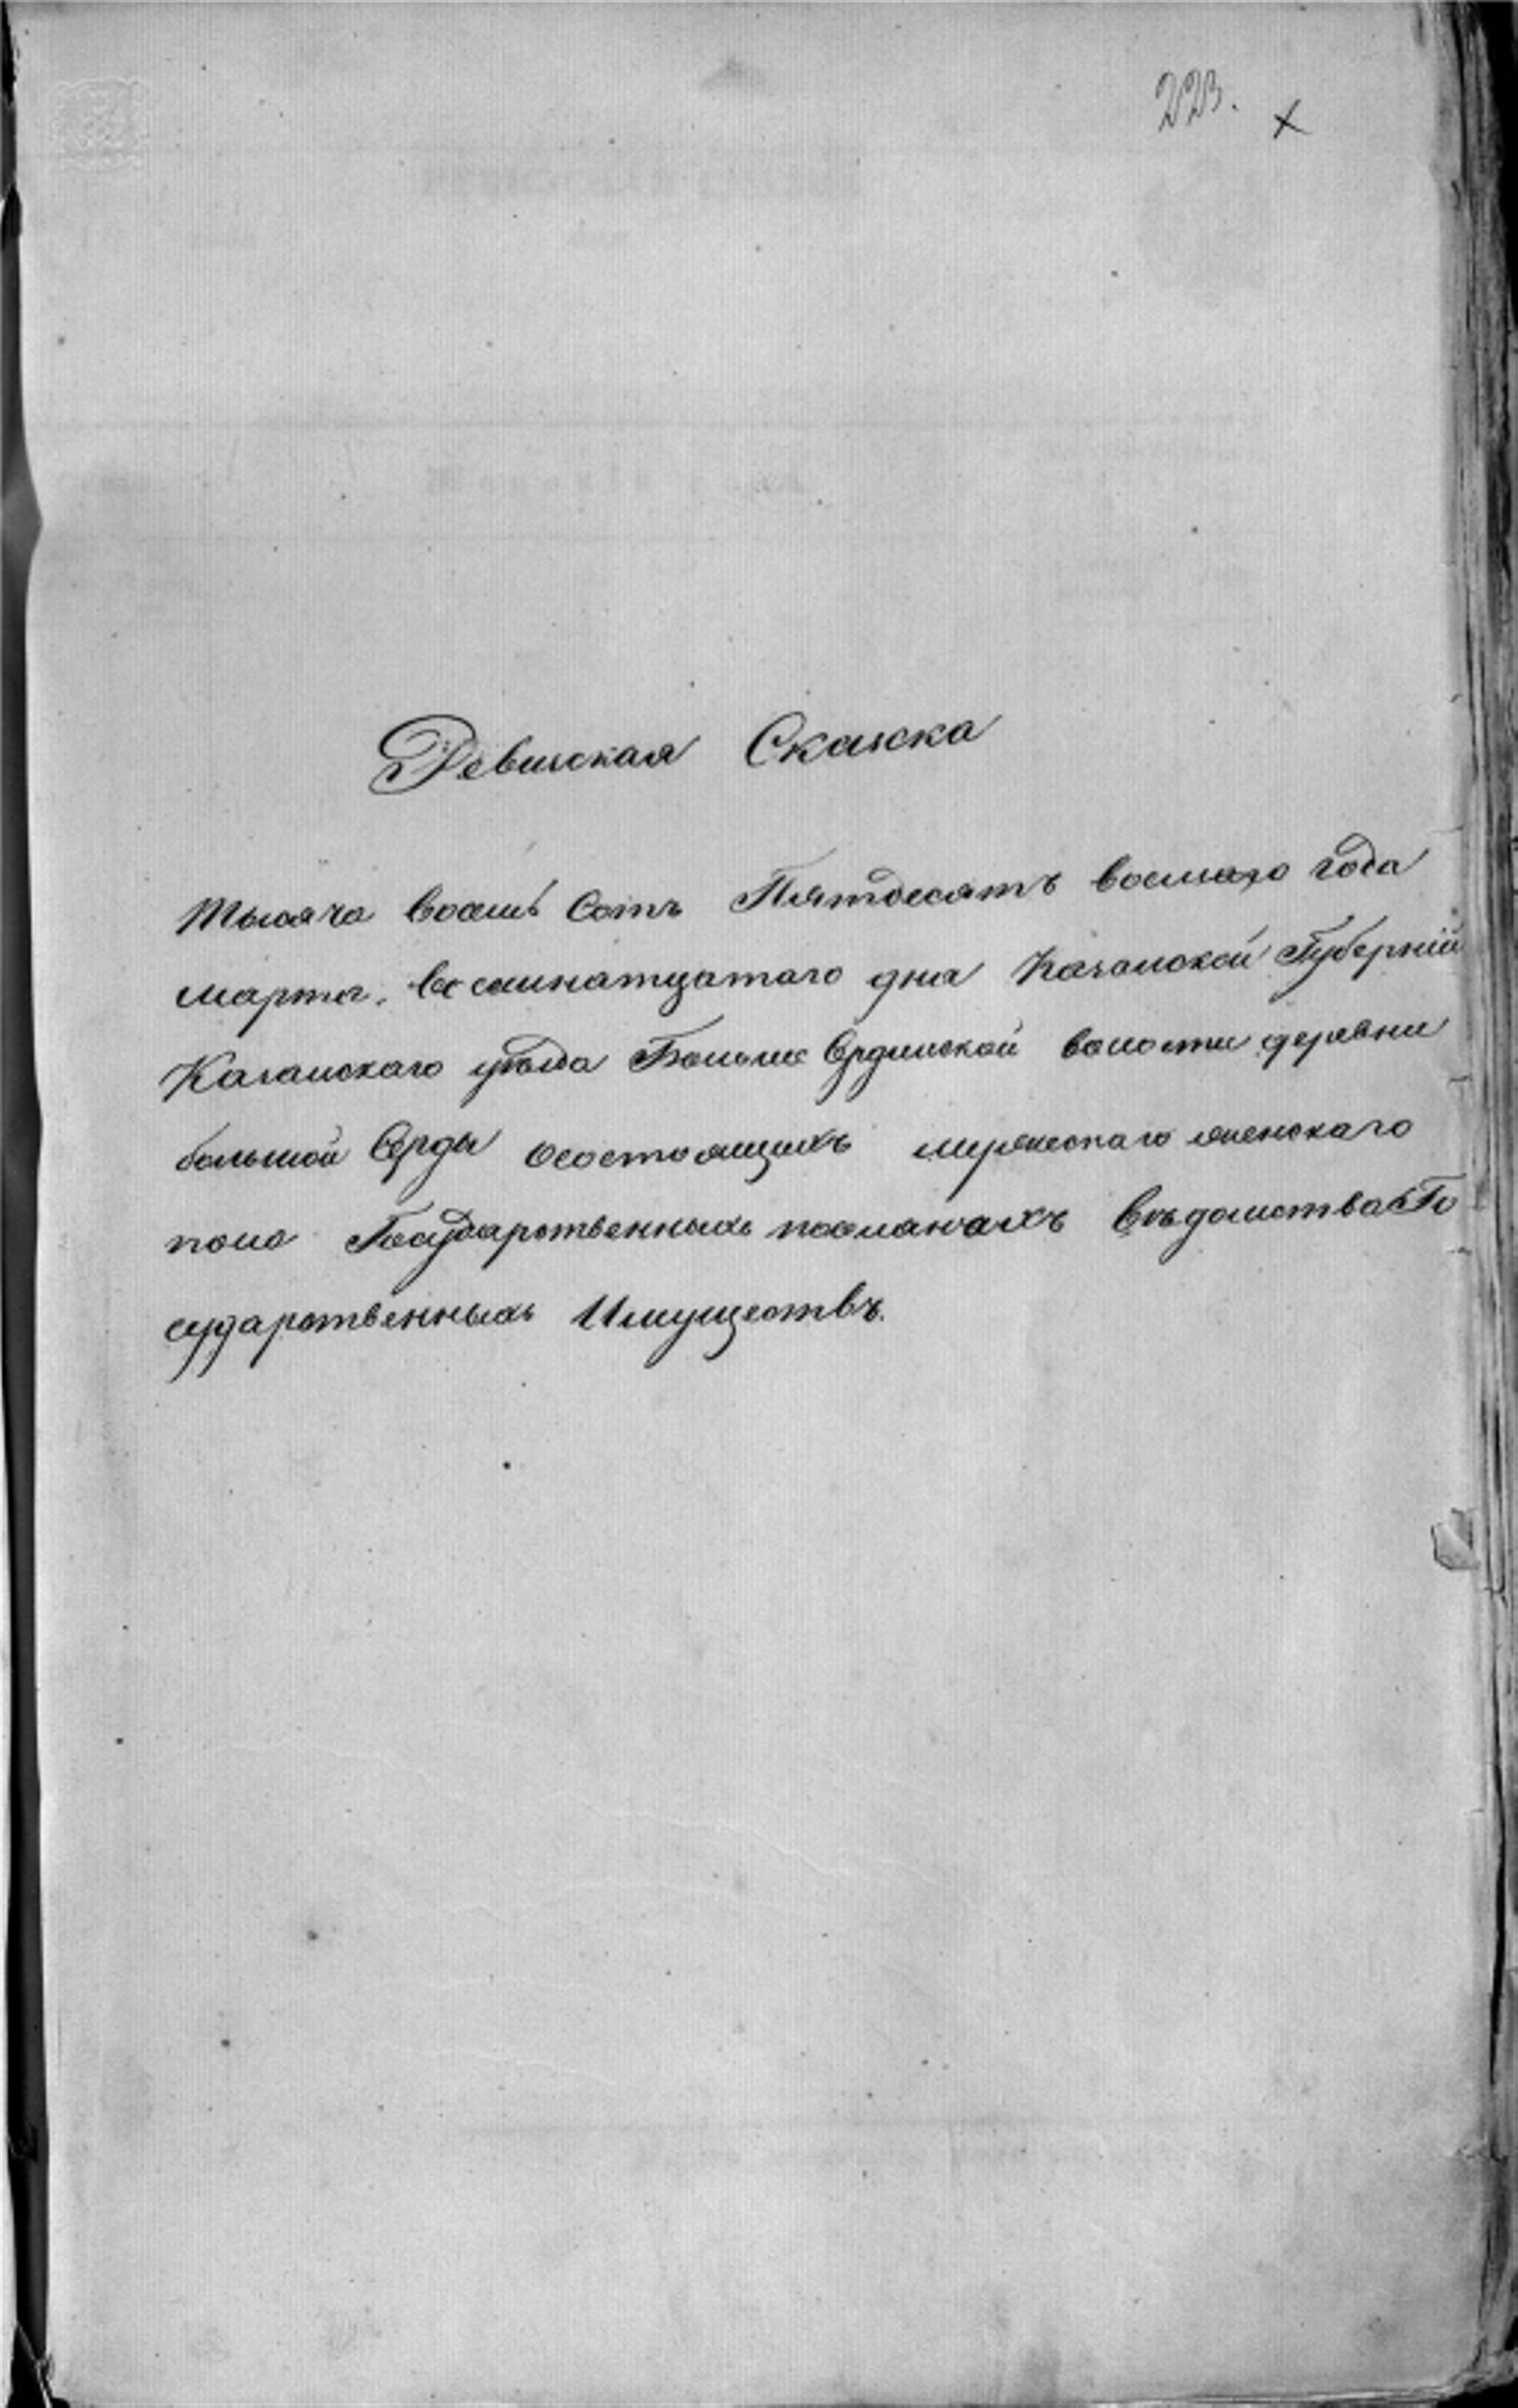 223. х
Ревиская Скаска
Тысяча восемь сотъ Пятдесятъ восмаго года
марта, восемнатцатаго дня Казанской Губерніи
Казанскаго уѣзда Больше Сердинской волости деревни
большой Серды осостоящихъ мужескаго женскаго
пола Государственныхъ поселянахъ вѣдомства Го
сударственныхъ Имуществъ.